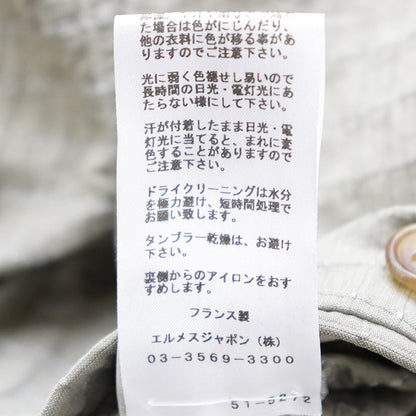 た場合は色がにじんだり、
他の衣料に色が移る事があ
りますのでご注意下さい。
光に弱く色褪せし易いので
長時間の日光・電灯光にあ
たらない様にして下さい。
汗が付着したまま日光・電
灯光に当てると、まれに変
色することがありますので
ご注意下さい。
ドライクリーニングは水分
を極力避け、短時間処理で
お願い致します。
タンブラー乾燥は、お避け
下さい。
裏側からのアイロンをおす
すめします。
フランス製
エルメスジャポン(株)
03-3569-3300
51-5272